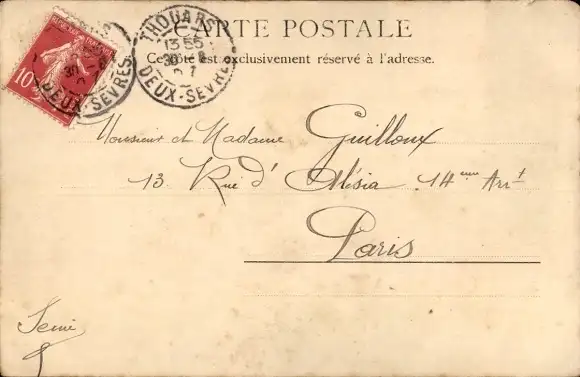 CARTE POSTALE
Ce côté est exclusivement réservé à l'adresse.
THOUARS
13 55
30 - 8
07
DEUX-SEVRES
10c
30 - 8
DEUX-SEVRES
Monsieur et Madame Guilloux
13 Rue d' Alésia 14eme Arrt
Paris
Seine